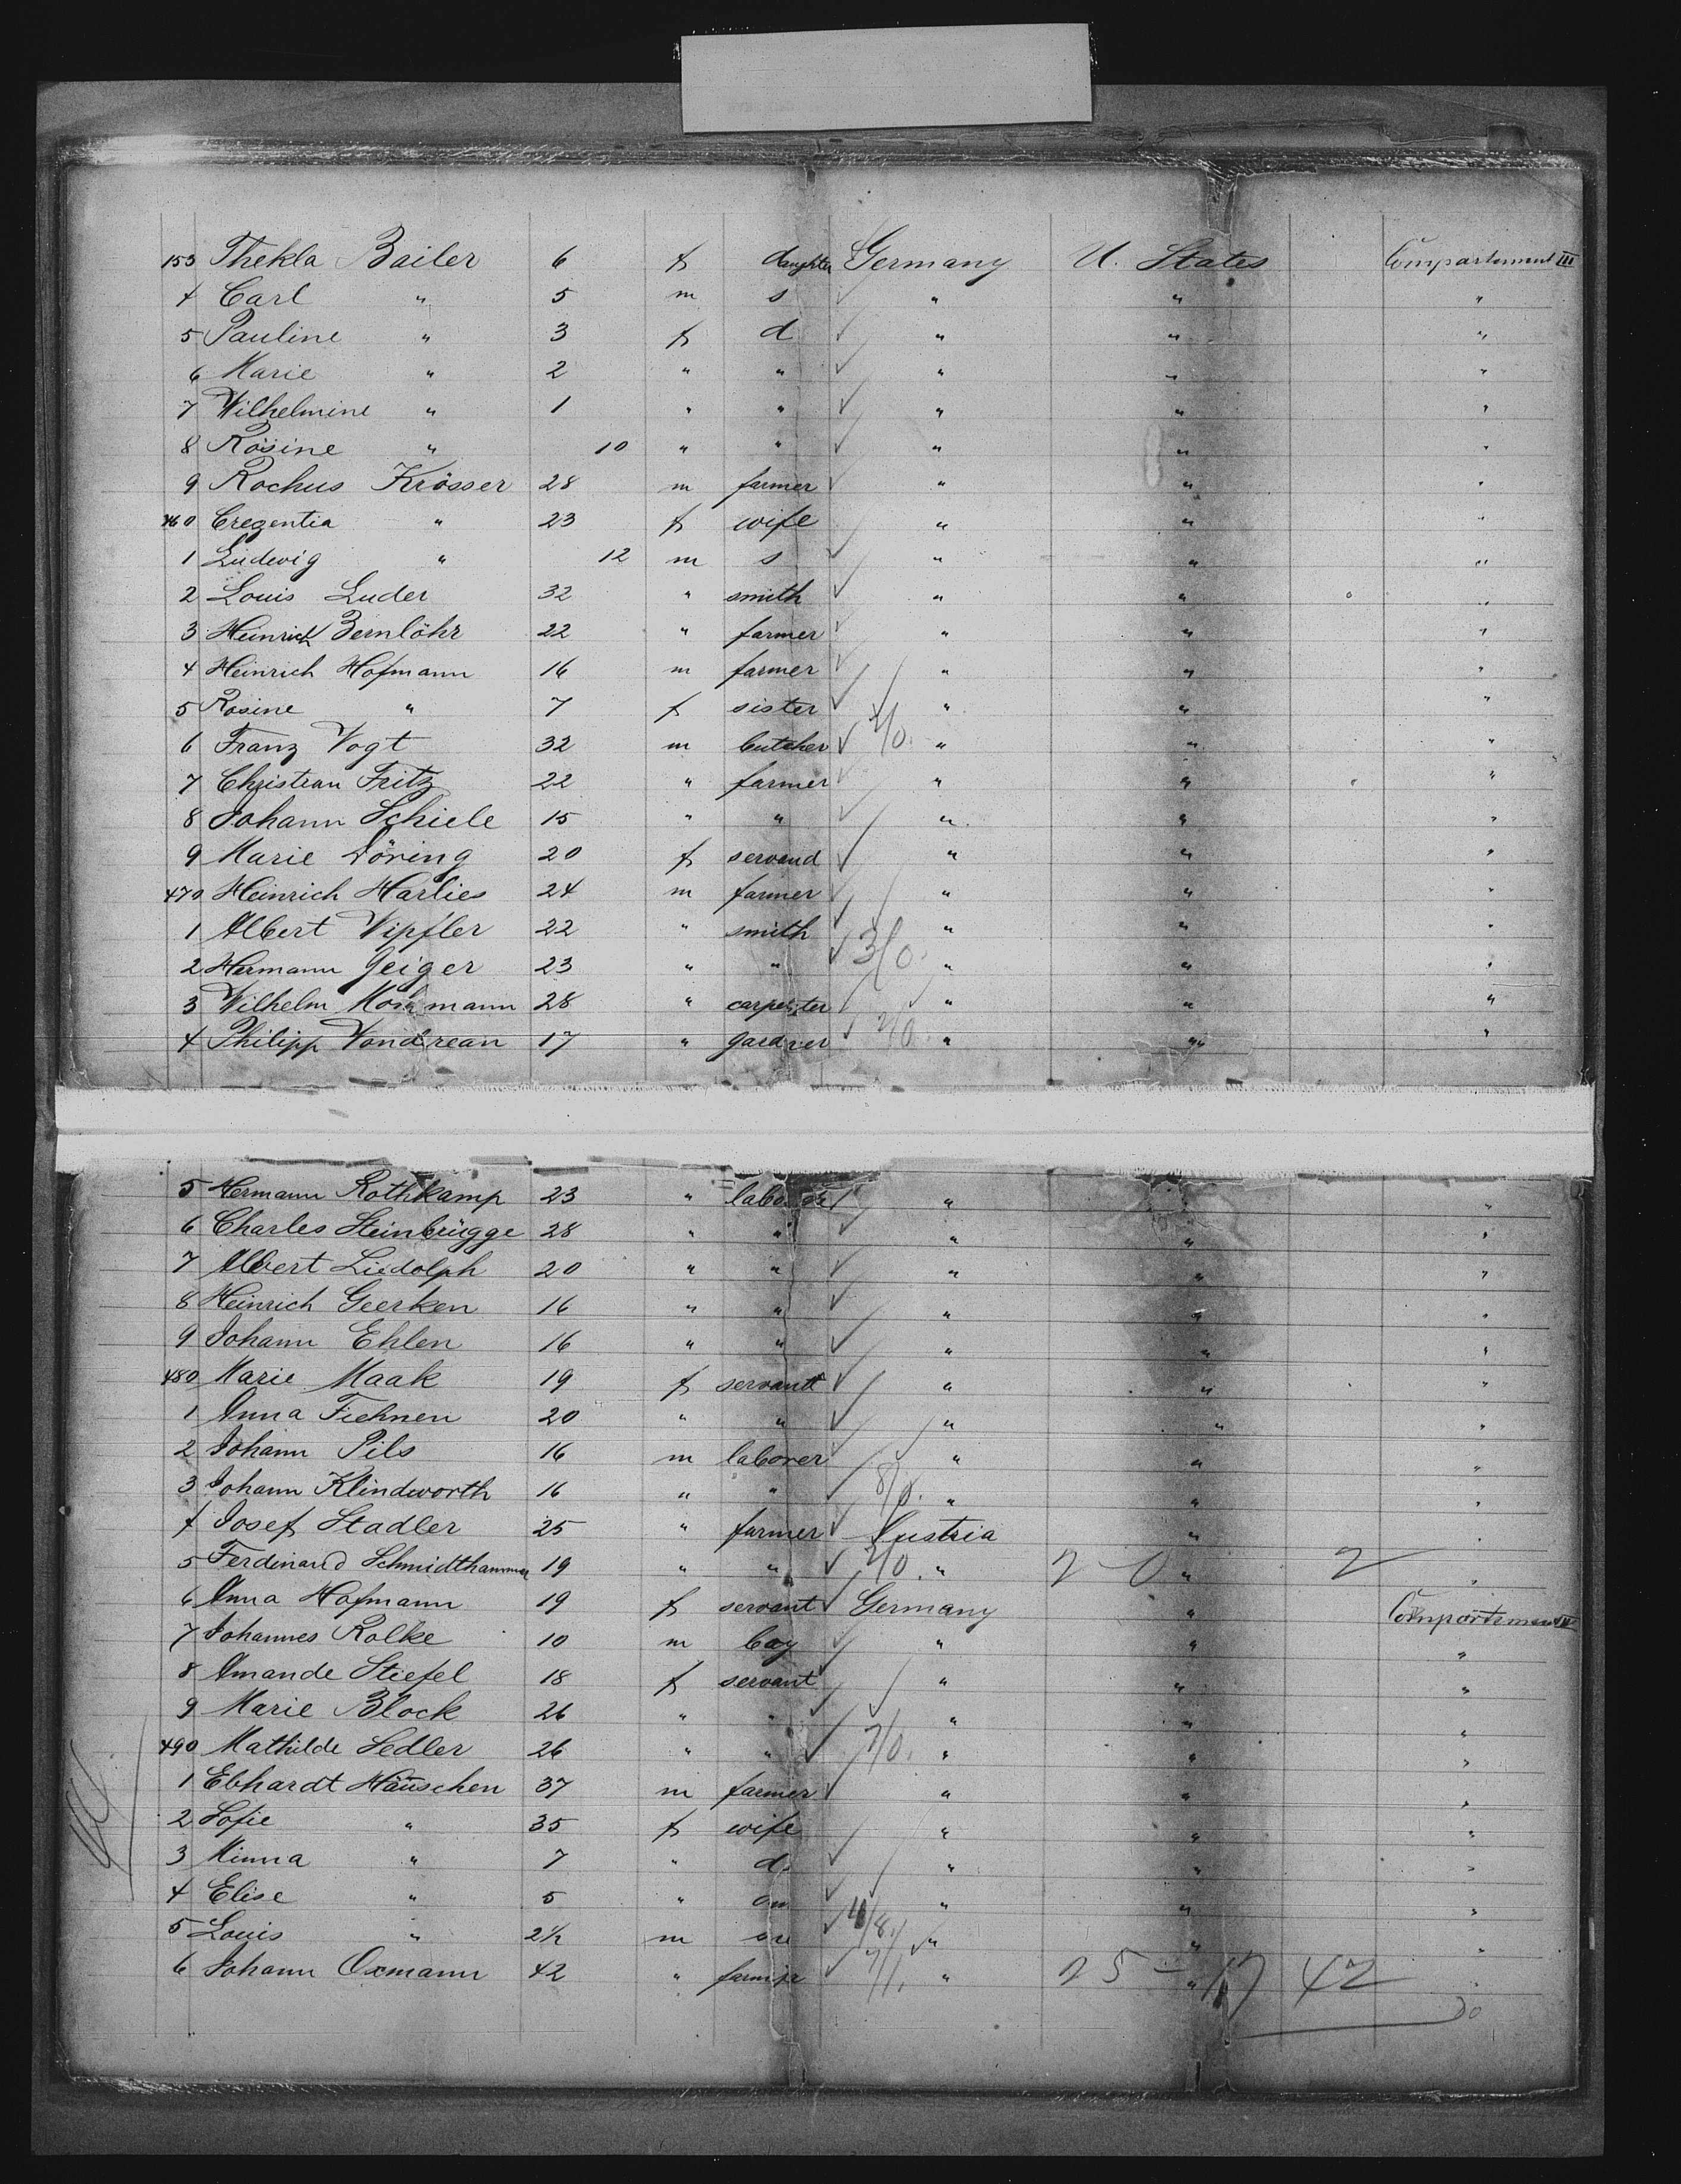 153 Thekla Bailer 6 f daughter Germany U. States Compartement III
4 Carl " 5 m s " " "
5 Pauline " 3 f d " " "
6 Marie " 2 " " " " "
7 Wilhelmine " 1 " " " " "
8 Rosine " 10 " " " " "
9 Rochus Krösser 28 m farmer " " "
460 Cregentia " 23 f wife " " "
1 Ludwig " 12 m s " " "
2 Louis Luder 32 " smith " " "
3 Heinrich Bernlöhr 22 " farmer " " "
4 Heinrich Hofmann 16 m farmer " " "
5 Rosine " 7 f sister " " "
6 Franz Vogt 32 m butcher 4/0. " " "
7 Christian Fritz 22 " farmer " " "
8 Johann Schiele 15 " " " " "
9 Marie Döring 20 f servand " " "
470 Heinrich Harlies 24 m farmer " " "
1 Albert Vipfler 22 " smith " " "
2 Hermann Geiger 23 " " 3/0. " " "
3 Wilhelm mann 28 " carpenter " " "
4 Philipp Vondrean 17 " gardner 2/0. " " "
5 Hermann Rothkamp 23 " laborer " " "
6 Charles Steinbrügge 28 " " " " "
7 Albert Liedolph 20 " " " " "
8 Heinrich Geerken 16 " " " " "
9 Johann Ehlen 16 " " " " "
480 Marie Maak 19 f servant " " "
1 Anna Fiehnen 20 " " " " "
2 Johann Pils 16 m laborer " " "
3 Johann Klindworth 16 " " 8/0. " " "
4 Josef Stadler 25 " farmer Austria " "
5 Ferdinand Schmidthammer 19 " " 2/0. " 2 - 0 " 2 "
6 Anna Hofmann 19 f servant Germany " Compartement
7 Johannes Rolke 10 m boy " " "
8 Amande Stiefel 18 f servant " " "
9 Marie Block 26 " " " " "
490 Mathilde Sedler 26 " " 7/0. " " "
1 Ebhardt Häuschen 37 m farmer " " "
2 Sofie " 35 f wife " " "
3 Minna " 7 " d. " " "
4 Elise " 5 " " " "
5 Louis " 2½ m " " "
6 Johann Oxmann 42 " farmer " 25 - 17 " 42 "